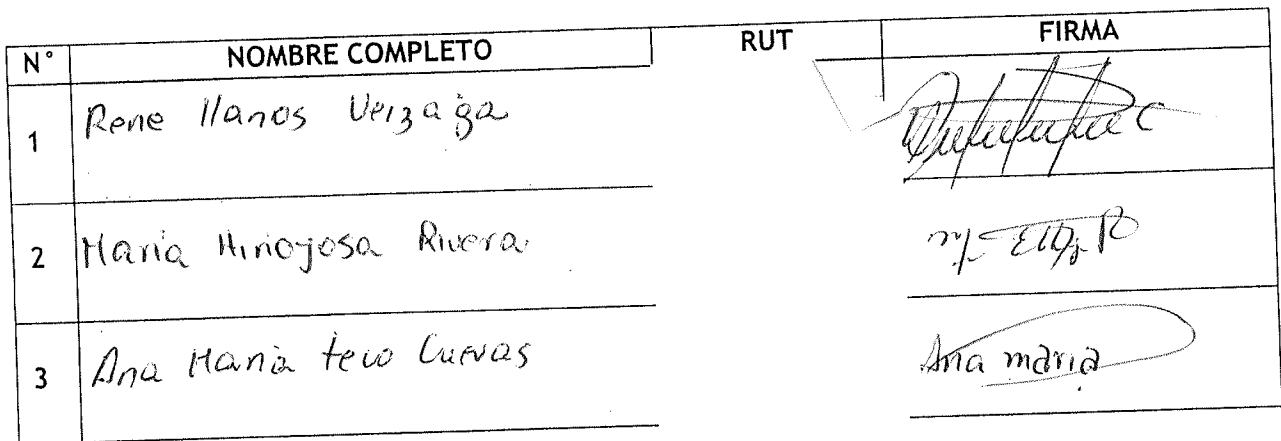 N° NOMBRE COMPLETO RUT FIRMA
1 Rene llanos Verzaga
2 Maria Hinojosa Rivera
3 Ana Maria Cuevas Ana maria